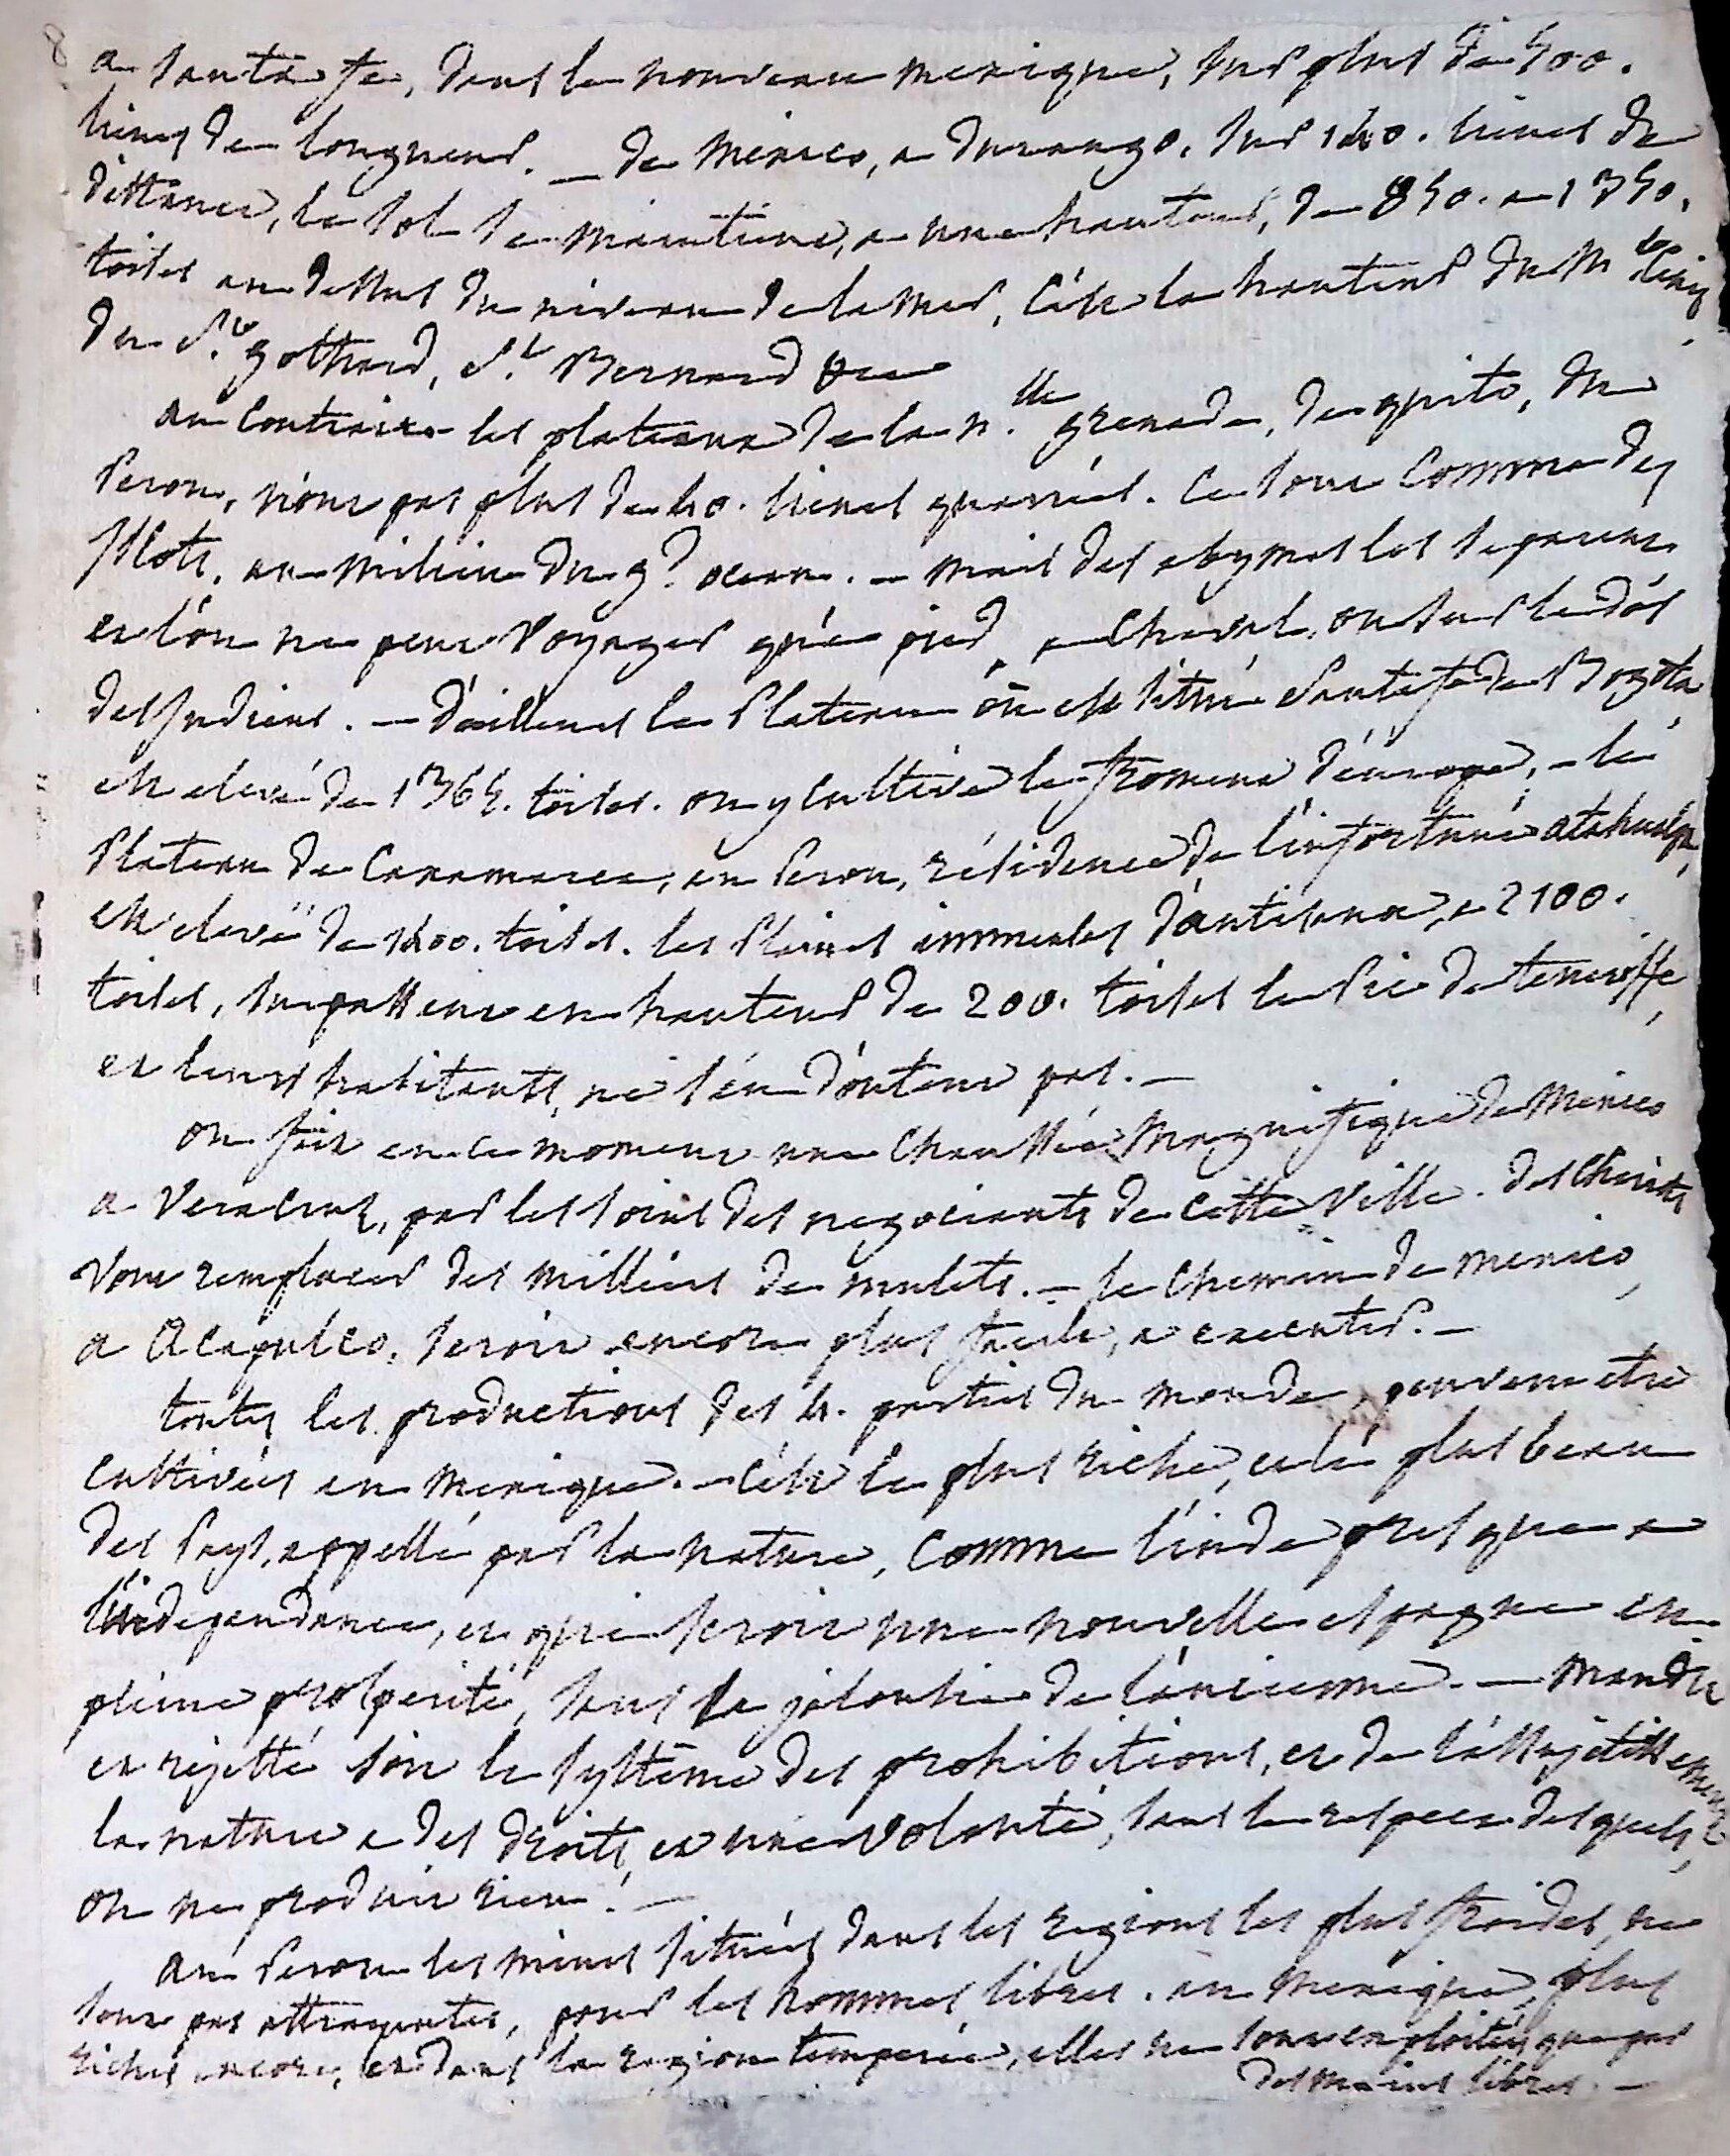 8
a santa fe, dans le nouveau mexique, sur plus de 500.
lieues de longueur. — de Mexico, a durango, sur 140. lieues de
distance, le sol se maintient, a une hauteur, de 850. a 1350.
toises au dessus du niveau de la mer, c'est la hauteur du M.t Cenis
du S.t gothard, S.t Bernard &c
au contraire les plateaux de la n.lle grenade, de quito, du
Perou, n'ont pas plus de 40. lieues quarrées. Ce sont comme des
Ilots, au milieu du g.d ocean. — mais des abymes les separent
et l'on ne peut voyager qu'a pied, a cheval, ou sur le dos
des Indiens. — d'ailleurs le Plateau où est situé Santa fe de Bogota,
est elevé de 1365. toises. on y cultive le froment d'europe, — le
Plateau de Caxamarca, au Perou, résidence de l'infortuné atahualpa,
est elevé de 1400. toises. les Plaines immenses d'antisana, a 2100.
toises, surpassent en hauteur de 200. toises le Pic de teneriffe,
et leurs habitants, ne s'en doutent pas. —
on fait en ce moment une chaussée magnifique de Mexico
a Veracruz, par les soins des negociants de cette ville. des chariots
vont remplacer des milliers de mulets. — le chemin de mexico,
a Acapulco, seroit encore plus facile, a executer. —
toutes les productions des 4. parties du monde, peuvent etre
cultivées au mexique. — c'est le plus riche, et le plus beau
des Pays, appellé par la nature, comme l'inde presque a
l'independance, et qui seroit une nouvelle espagne en
pleine prosperité, sans la jalousie de l'ancienne. — maudit
et rejetté soit le systême des prohibitions, et de l'assujetissement
la nature a des droits, et une volonté, sans le respect desquels,
on ne produit rien! —
au Perou les mines situées dans les regions les plus froides, ne
sont pas attrayantes, pour les hommes libres. au mexique, plus
riches encore, et dans la region temperée, elles ne sont exploitées que par
des mains libres. —